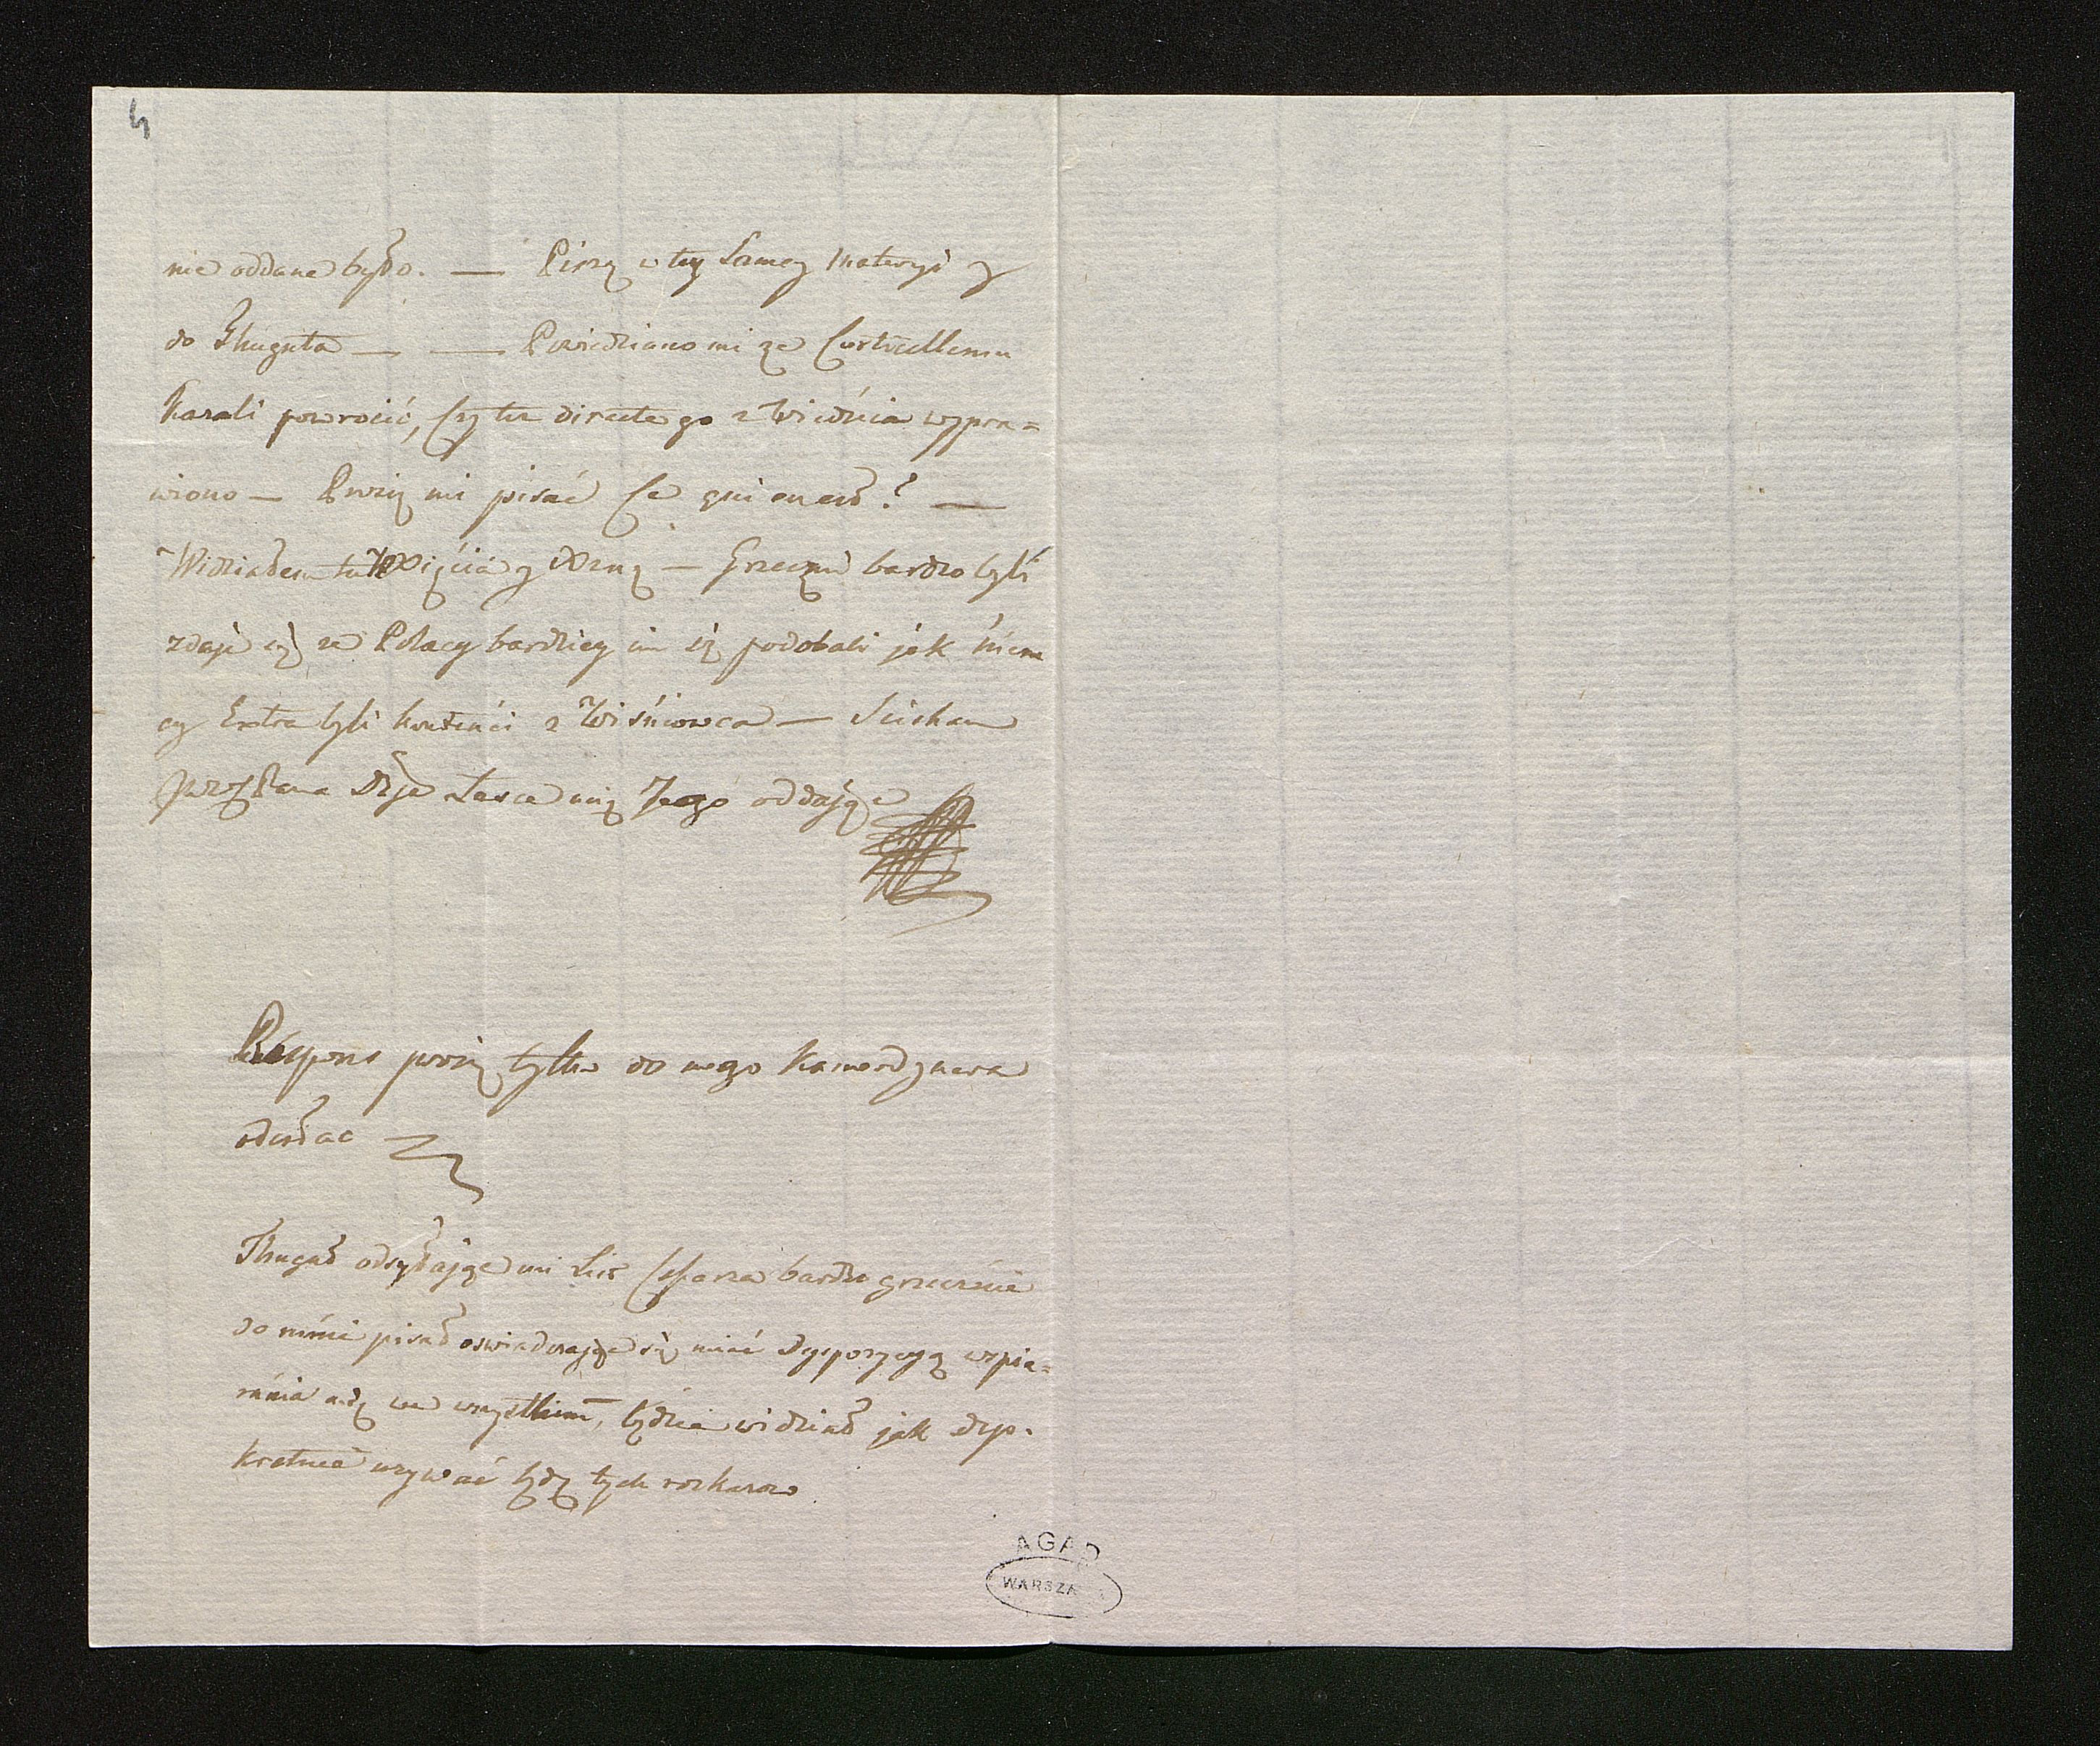 4
nie oddane było. — Piszę w tey Samey Materyi y
do Thuguta — — Powiedziano mi że Corticellemu
Kazali powrocić, czy tu directe go z Wiednia wypra=
wiono — Proszę mi pisać Ce qui en est? —
Widziałem tu Xięcia y Xżnę — Grzeczni bardzo byli
zdaje się ze Polacy bardziey im się podobali jak Niem
cy Extra byli kontenci z Wiśniowca — Sciskam
Pana Dzja Łasce mię Jego oddając
Respons proszę tylko do mego Kamerdynera
odesłac
Thugut odsyłając mi List Cesarza bardzo grzecznie
do mnie pisał oswiadczając się mieć dyspozycyą wspie=
rania mię we wszystkiem, będzie widział jak dys-
kretnie uzywać będę tych rozkazow
AGAD
WARSZA